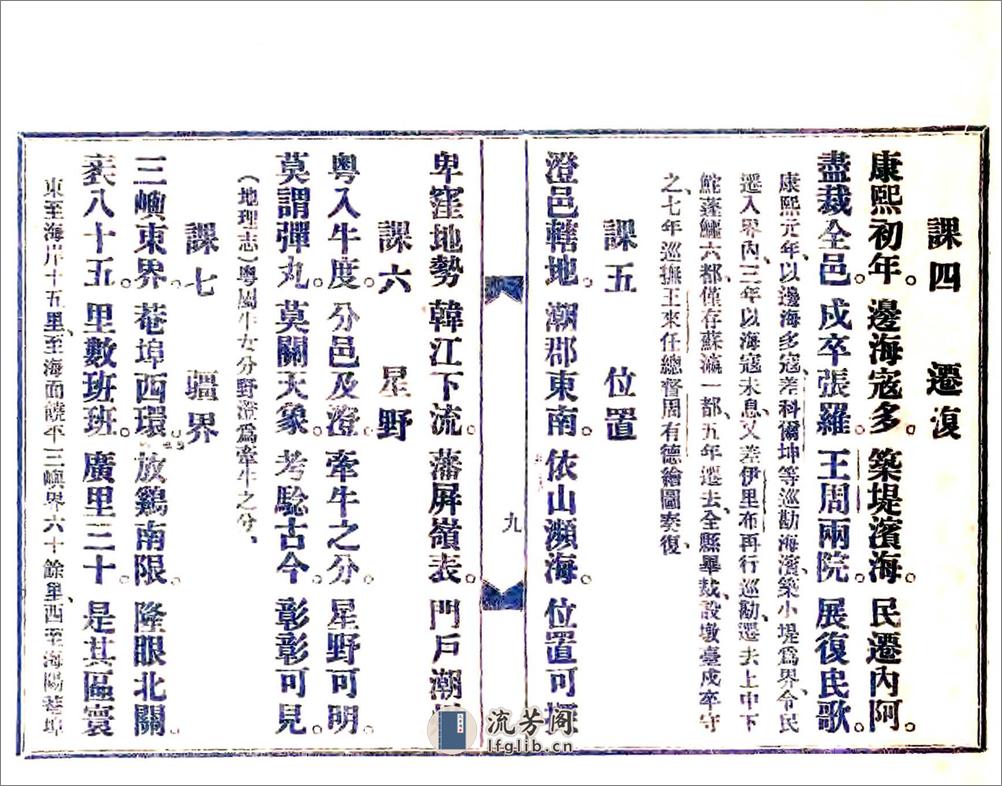 課四 遷復
康熙初年。邊海寇多。築堤濱海。民遷內阿。
盡裁全邑。戍卒張羅。王周兩院。展復民歌。
康熙元年、以邊海多寇、差科爾坤等巡勘海濱、築小堤爲界、令民
遷入界內、三年以海寇未息、又差伊里布再行巡勘、遷去上中下
鮀蓬鱷六都、僅存蘇灣一都、五年遷去、全縣畢裁、設墩臺戍卒守
之、七年巡撫王來任總督周有德繪圖奏復、
課五 位置
澄邑轄地。潮郡東南。依山瀕海。位置可
九
卑窪地勢 韓江下流。藩屏嶺表。門戶潮
課六 星野
粵入牛度。分邑及澄。牽牛之分 星野可明。
莫謂彈丸。莫關天象。考驗古今。彰彰可見。
（地理志）粵國牛女分野澄爲牽牛之分、
課七 疆界
三嶼東界。菴埠西環。放鷄南限。隆眼北關。
袤八十五。里數班班。廣里三十。是其區寰
東至海岸十五里、至海面饒平三嶼界六十餘里、西至海陽菴埠
流芳阁
lfglib.cn